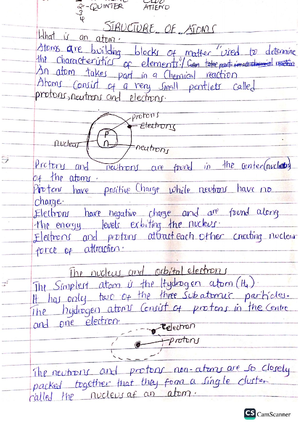 QUINTER
ATIENO
STRUCTURE OF ATOMS
What is an atom.
Atoms are building blocks of matter used to determine
the characteristics of elements
An atom takes part in a chemical reaction
Atoms consist of a very small particlets called
protons, neutrons and electrons.
protons
electrons
P
n
nucleus
neutrons
Protrns and neutrons are found in the center(nucleus)
of the atoms.
Protens have positive charge while neutrons have no
charge.
Electrons have negative charge and are found along
the energy levels orbiting the nucleus.
Eletrons and protons attract each other creating nuclear
force of attraction.
The nucleus and orbital electrons
The Simplest atom is the Hydrogen atom
It has only two of the three Subatomic particles.
The hydrogen atoms consist of protons in the Centre
and one electron
electron
protons
The neutrons and protons non-atoms are so closely
packed together that they form a single cluster
called the nucleus of an atom.
CS CamScanner